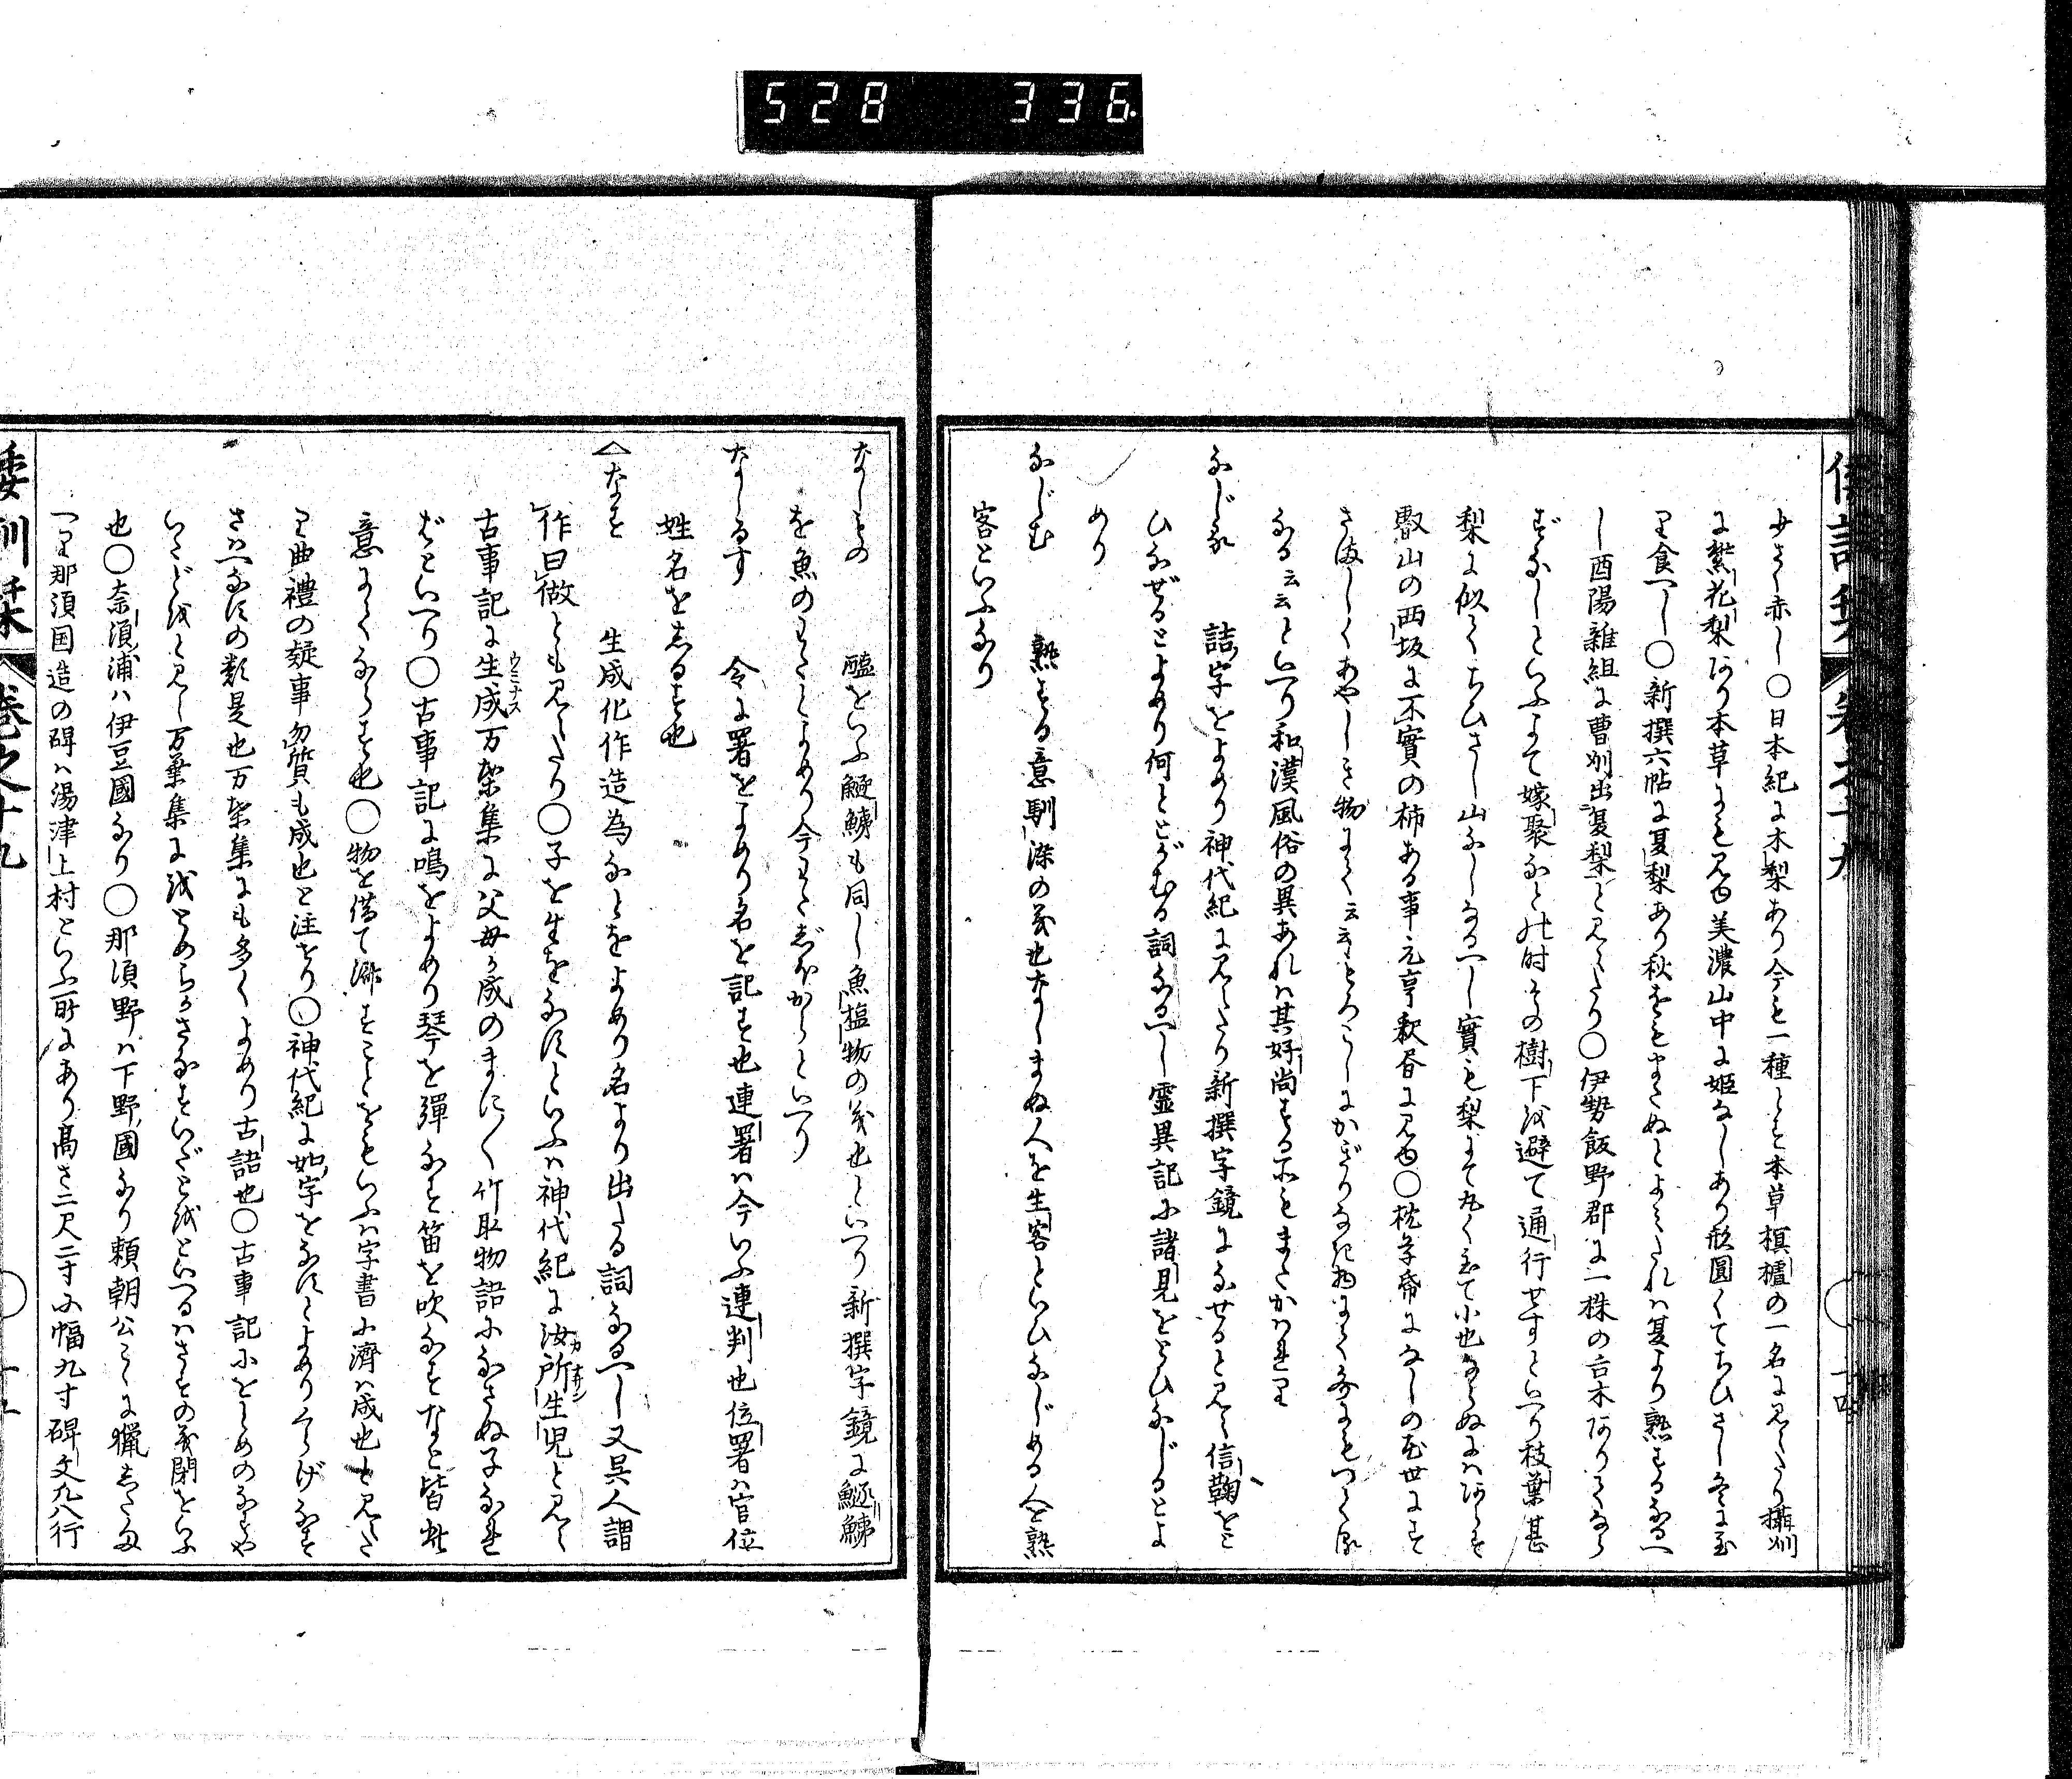 528 336.
倭訓栞 巻之十九 ○ 十四
少さく赤し○日本紀に木梨あり今も一種とす本草榠櫨の一名に見えたり攝州
に紫花梨あり本草にも見ゆ美濃山中に姫なしあり核圓くてちひさし冬に至
り食へし○新撰六帖に夏梨あり秋をもまたぬとよみたれは夏より熟するなるへ
し酉陽雜組に曹州出夏梨と見えたり○伊勢飯野郡に一株の古木ありてなら
ずなしといふよて嫁娶なと此時その樹下を避て通行せすといへり枝葉甚
梨に似てちひさし山なしなるへし實も梨にて丸く至て小也ならぬにはあらす
叡山の西坂に不實の柿ある事元亨釈書に見ゆ○枕草帋になしの花世にす
さましくあやしき物にて云々もろこしにかぎりなき物にて文にもつくる
なる云々といへり和漢風俗の異あれは其好尚する所もまたかはれり
なじる 詰字をよめり神代紀に見えたり新撰字鏡になせると見え信鞠をと
ひなぜるとよめり何ととがむる詞なるへし霊異記に諸見をとひなじるとよ
めり
なじむ 熟する意馴染の義也なしまぬ人を生客といひなじめる人を熟
客といふなり
なしもの 醢をいふ鱁鮧も同し魚塩物の義也といへり新撰字鏡に鱁鮧
を魚のわたとよめり今わたじほからといへり
なしるす 令に署をよめり名を記す也連署は今いふ連判也位署は官位
姓名をしるす也
へなす 生成化作造為なとをよめり名より出たる詞なるへし又呉人謂
作曰做とも見えたり○子を生をなすといふは神代紀に汝所生児と見え
古事記に生成万葉集に父母か成のまに〱竹取物語になさぬ子なれ
ばといへり○古事記に鳴をよめり琴を彈なす笛を吹なすなと皆此
意にてならす也○物を借て濟すことをもいふは字書に濟は成也と見えた
り曲禮の疑事勿質も成也と注せり○神代紀に如字をなすとよめりくらげなす
さはへなすの類是也万葉集にも多くよめり古語也○古事記にをとめのなすや
いたどをと見え万葉集にをとめらがさなすいたどをといへるはさすの義閉をいふ
也○奈須浦は伊豆國なり○那須野は下野國なり頼朝公こゝに獵したま
へり那須国造の碑は湯津上村といふ所にあり高さ二尺二寸に幅九寸碑文凡八行
倭訓栞 巻之十九 ○ 十五